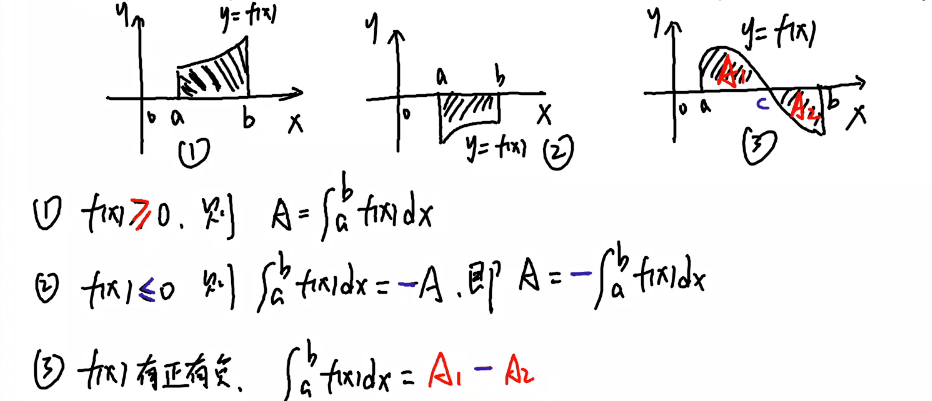 y y=f(x) 0 a b x ①
y a b 0 x y=f(x) ②
y y=f(x) A₁ 0 a c A₂ b x ③
① f(x)≥0. 则 A=∫ₐᵇ f(x)dx
② f(x)≤0 则 ∫ₐᵇ f(x)dx=-A. 即 A=-∫ₐᵇ f(x)dx
③ f(x)有正有负. ∫ₐᵇ f(x)dx=A₁-A₂